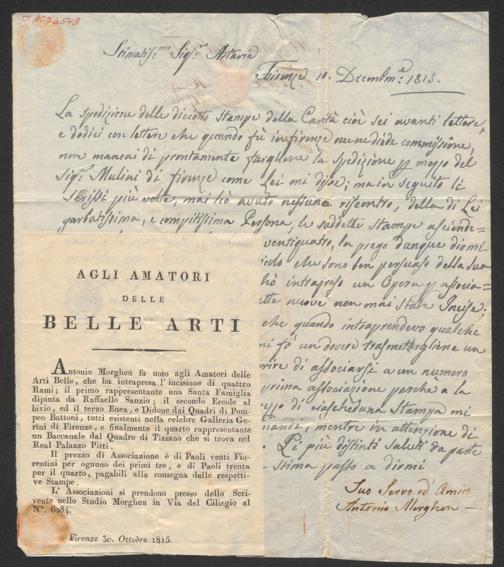 Stimatis:mo Sig:r Artaria
Firenze 10. Decembr.e 1815.
La spedizione delle diciotto Stampe della Carità cioè sei avanti lettere,
e dodici con lettere che quando fù in firenze me ne diede commissione,
non mancai di prontamente fargliene la spedizione p mezzo del
Sig:r Mulini di firenze come Lei mi disse; ma in seguito li
scrissi più volte, mai hò avuto nessuna riscontro, della di Lei
garbatissima, e compitissima Persona, le suddette Stampe ascende-
ventiquatro, la prego dunque dirmi
che sono ben persuaso della sua
hò intrapreso un Opera p associa-
tutte nuove non mai state Incise;
che quando intraprendevo qualche
mi fò un dovere trasmettergliene un
di associarsi a un numero
prima associazione perchè a la
prezzo di ciascheduna Stampa mi
mentre in attenzione di
Li più distinti saluti da parte
stima passo a dirmi
Suo Servo ed Amico
Antonio Morghen
AGLI AMATORI
DELLE
BELLE ARTI
Antonio Morghen fa noto agli Amatori delle
Arti Belle, che ha intrapresa l'incisione di quattro
Rami; il primo rappresentante una Santa Famiglia
dipinta da Raffaello Sanzio; il secondo Ercole al
bivio, ed il terzo Enea, e Didone dai Quadri di Pom-
peo Battoni, tutti esistenti nella celebre Galleria Ge-
rini di Firenze, e finalmente il quarto rappresentante
un Baccanale dal Quadro di Tiziano che si trova nel
Real Palazzo Pitti.
Il prezzo di Associazione è di Paoli venti Fio-
rentini per ognuno dei primi tre, e di Paoli trenta
per il quarto, pagabili alla consegna delle respetti-
ve Stampe.
L' Associazioni si prendono presso dello Scri-
vente nello Studio Morghen in Via del Ciliegio al
N°. 6984.
Firenze 30. Ottobre 1815.